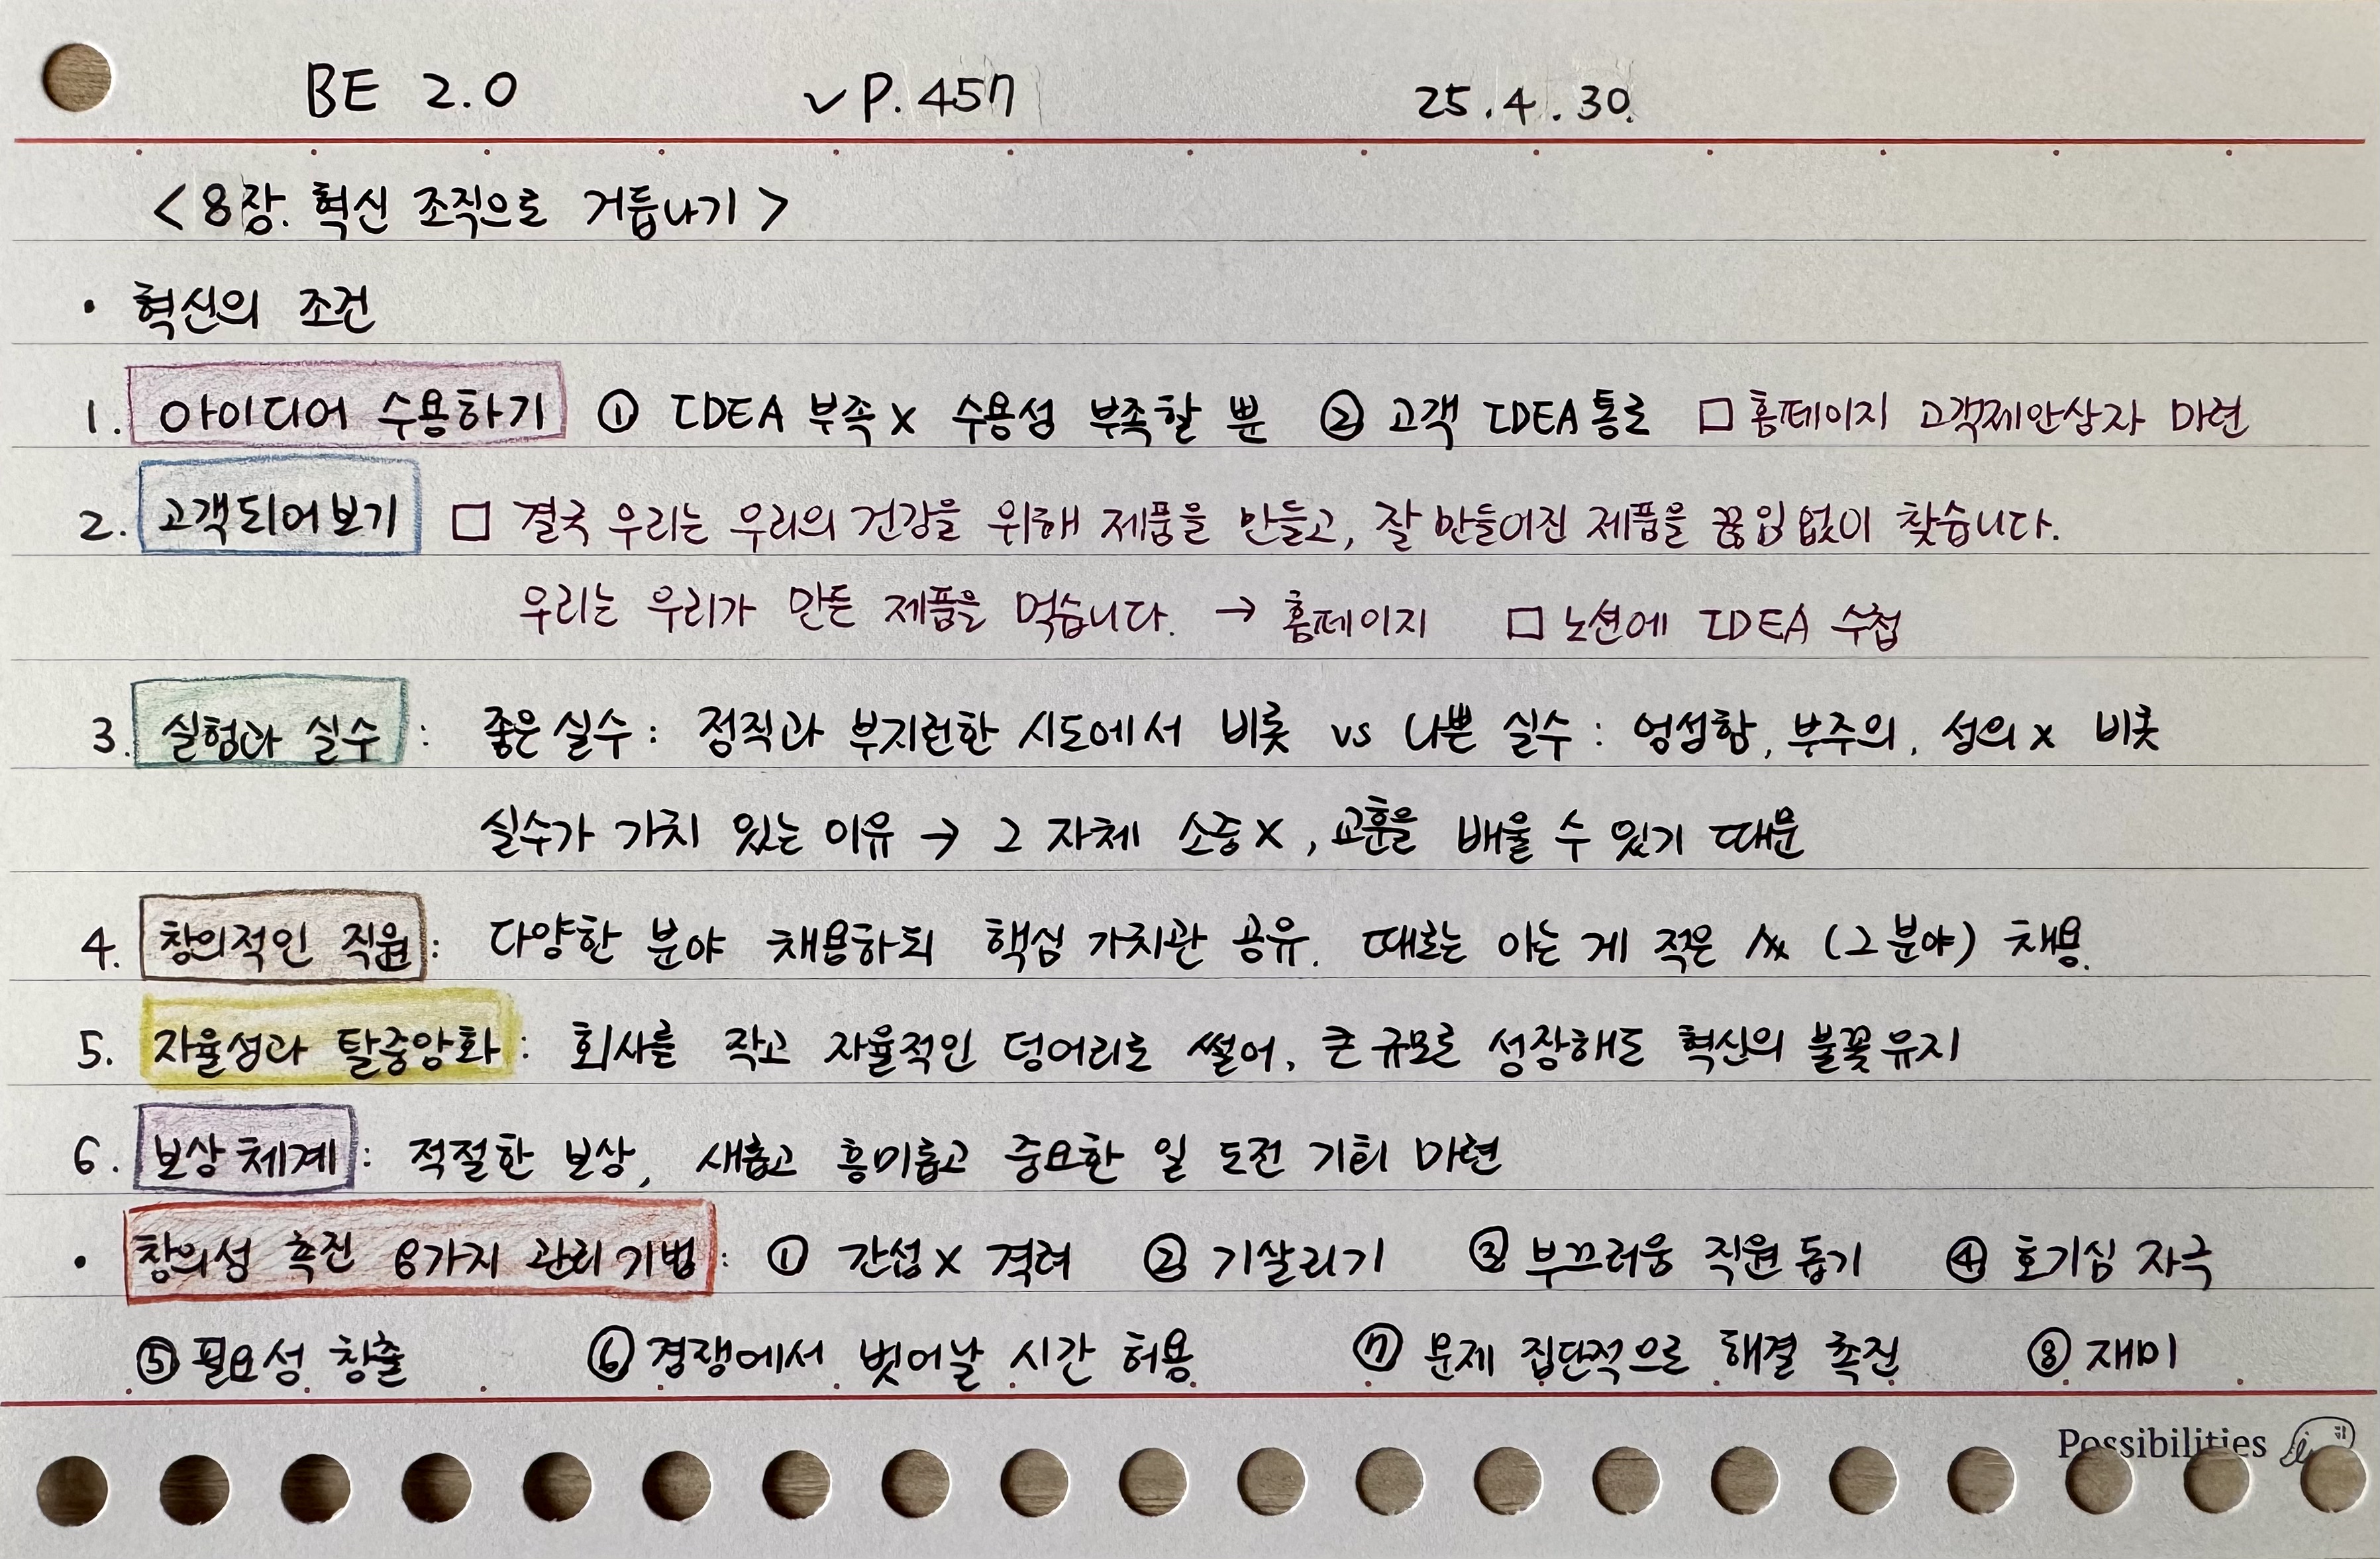 BE 2.0 ✓P.457 25.4.30.
<8장. 혁신 조직으로 거듭나기>
• 혁신의 조건
1. 아이디어 수용하기 ① IDEA 부족 X 수용성 부족할 뿐 ② 고객 IDEA 통로 □ 홈페이지 고객제안상자 마련
2. 고객되어보기 □ 결국 우리는 우리의 건강을 위해 제품을 만들고, 잘 만들어진 제품을 끊임없이 찾습니다.
우리는 우리가 만든 제품을 먹습니다. → 홈페이지 □ 노션에 IDEA 수첩
3. 실험과 실수 : 좋은 실수 : 정직과 부지런한 시도에서 비롯 vs 나쁜 실수 : 엉성함, 부주의, 성의 X 비롯
실수가 가치 있는 이유 → 그 자체 소중 X, 교훈을 배울 수 있기 때문
4. 창의적인 직원 : 다양한 분야 채용하되 핵심 가치관 공유. 때로는 아는 게 적은 (그 분야) 채용.
5. 자율성과 탈중앙화 : 회사를 작고 자율적인 덩어리로 썰어, 큰 규모로 성장해도 혁신의 불꽃 유지
6. 보상 체계 : 적절한 보상, 새롭고 흥미롭고 중요한 일 도전 기회 마련
• 창의성 촉진 8가지 관리 기법 : ① 간섭 X 격려 ② 기살리기 ③ 부끄러움 직원 돕기 ④ 호기심 자극
⑤ 필요성 창출 ⑥ 경쟁에서 벗어날 시간 허용 ⑦ 문제 집단적으로 해결 촉진 ⑧ 재미
Possibilities